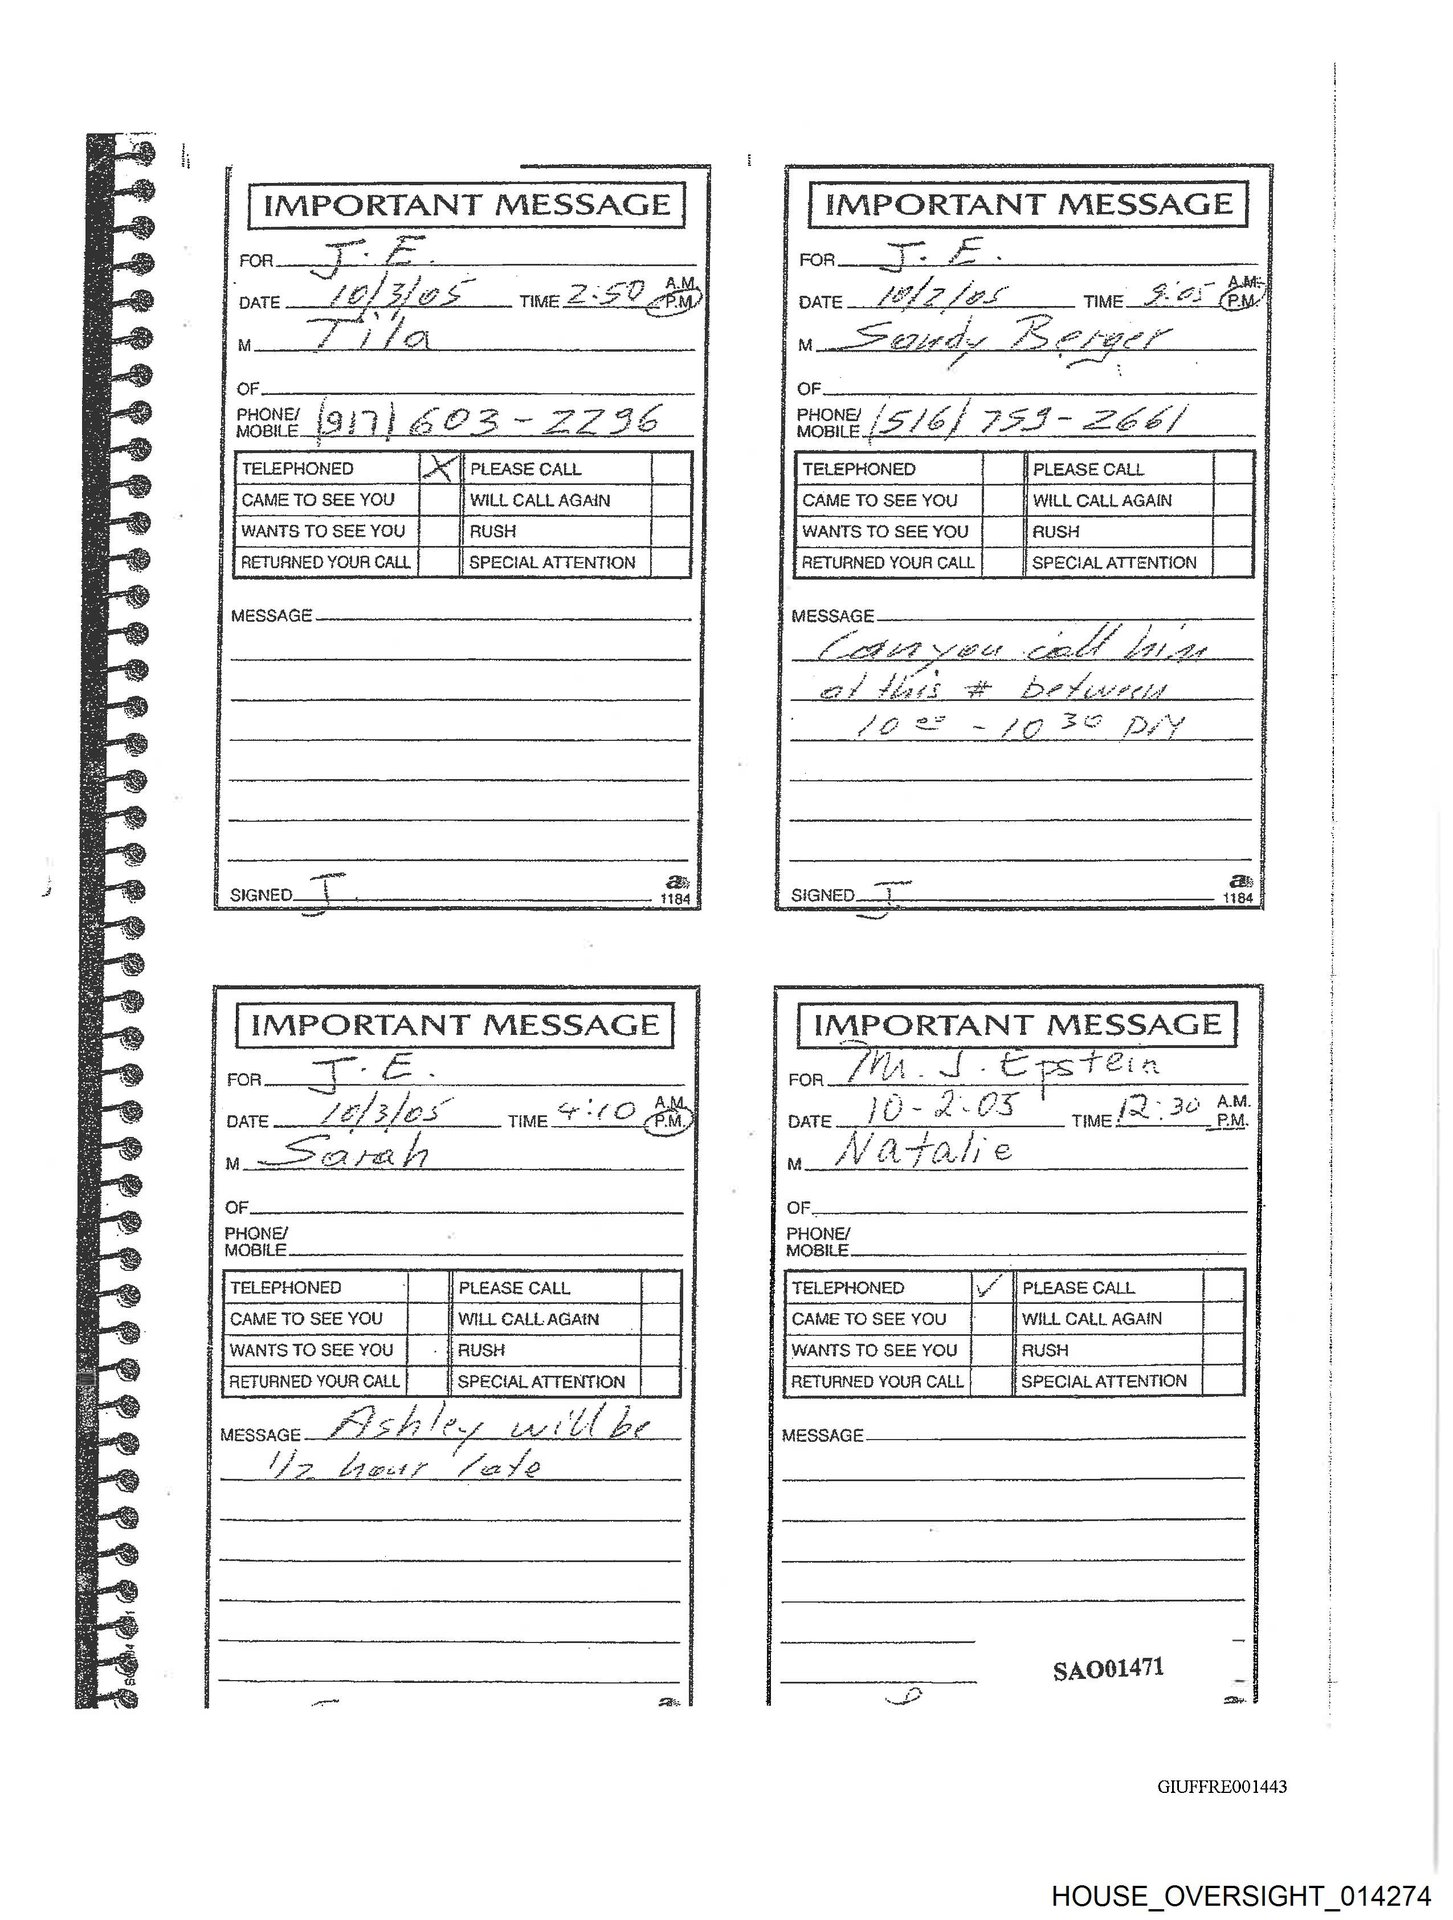 IMPORTANT MESSAGE
FOR J. E.
DATE 10/3/05 TIME 2:50 A.M.
P.M.
M Tila
OF
PHONE/
MOBILE (917) 603-2296
TELEPHONED X PLEASE CALL
CAME TO SEE YOU WILL CALL AGAIN
WANTS TO SEE YOU RUSH
RETURNED YOUR CALL SPECIAL ATTENTION
MESSAGE
SIGNED J
a
1184
IMPORTANT MESSAGE
FOR J. E.
DATE 10/2/05 TIME 9:05 A.M.
P.M.
M Sandy Berger
OF
PHONE/
MOBILE (516) 759-2661
TELEPHONED PLEASE CALL
CAME TO SEE YOU WILL CALL AGAIN
WANTS TO SEE YOU RUSH
RETURNED YOUR CALL SPECIAL ATTENTION
MESSAGE
Can you call him
at this # between
10 00 - 10 30 PM
SIGNED J
a
1184
IMPORTANT MESSAGE
FOR J. E.
DATE 10/3/05 TIME 4:10 A.M.
P.M.
M Sarah
OF
PHONE/
MOBILE
TELEPHONED PLEASE CALL
CAME TO SEE YOU WILL CALL AGAIN
WANTS TO SEE YOU RUSH
RETURNED YOUR CALL SPECIAL ATTENTION
MESSAGE Ashley will be
1/2 hour late
IMPORTANT MESSAGE
FOR Mr. J. Epstein
DATE 10-2-05 TIME 12:30 A.M.
P.M.
M Natalie
OF
PHONE/
MOBILE
TELEPHONED ✓ PLEASE CALL
CAME TO SEE YOU WILL CALL AGAIN
WANTS TO SEE YOU RUSH
RETURNED YOUR CALL SPECIAL ATTENTION
MESSAGE
SAO01471
GIUFFRE001443
HOUSE_OVERSIGHT_014274